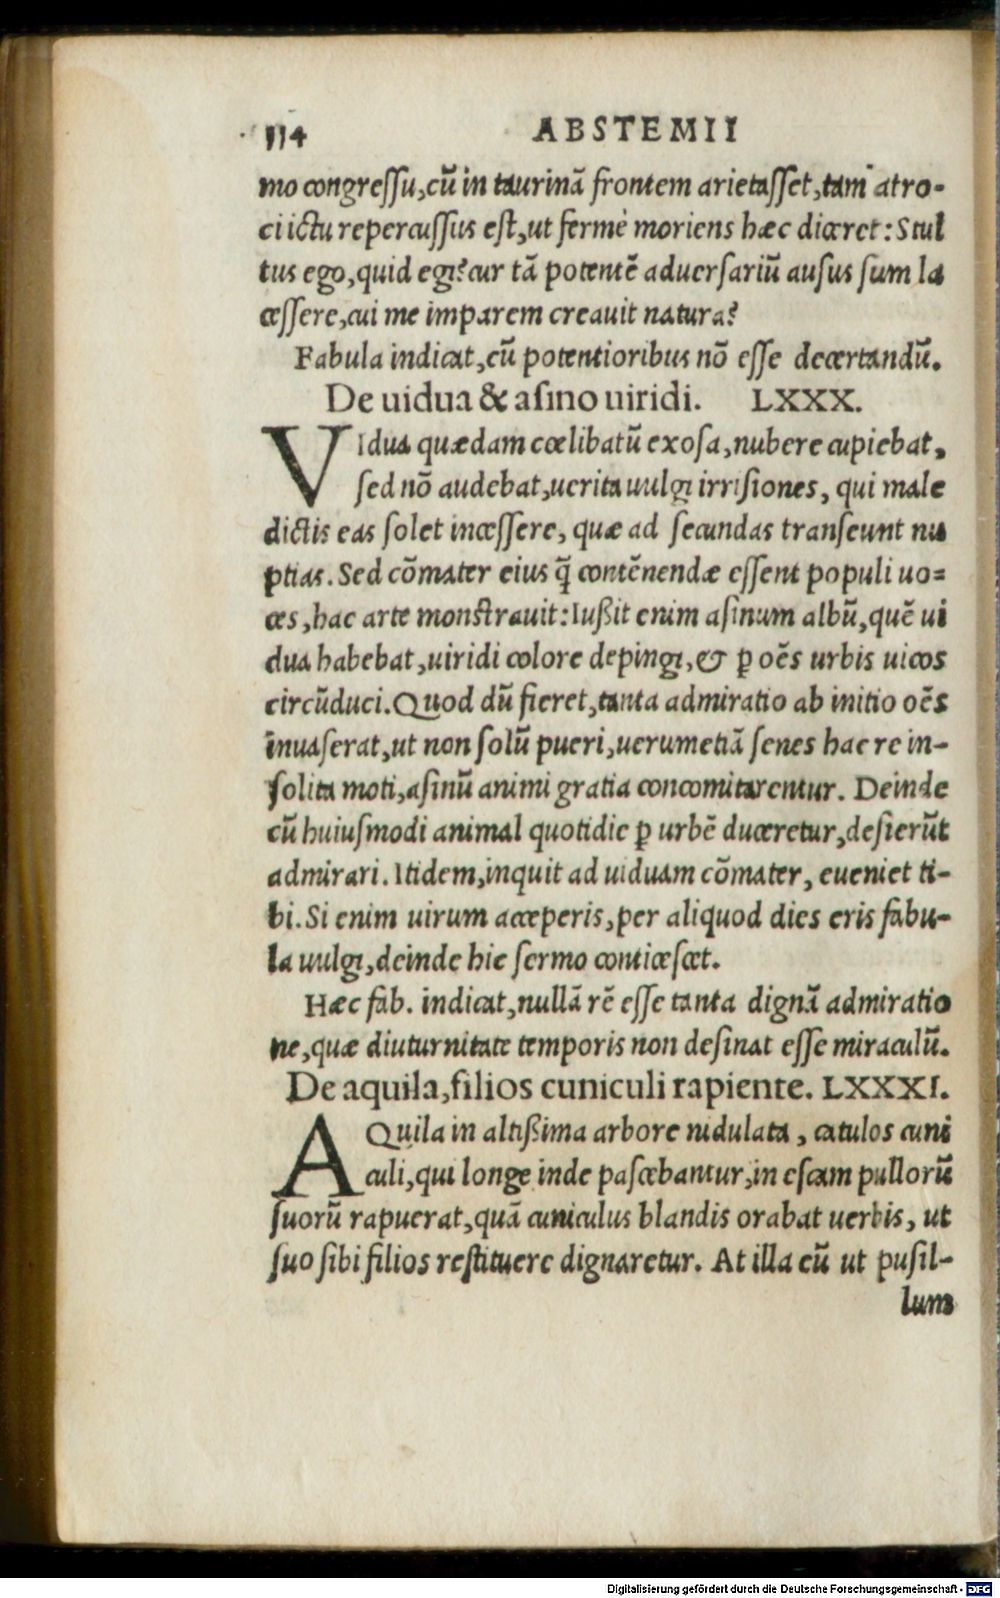 114 ABSTEMII
mo congressu, cũ in taurinã frontem arietasset, tam atro-
ci ictu repercussus est, ut fermè moriens hæc diceret: Stul
tus ego, quid egi? cur tã potentẽ aduersariũ ausus sum la
cessere, cui me imparem creauit natura?
Fabula indicat, cũ potentioribus nõ esse decertandũ.
De uidua & asino uiridi. LXXX.
VIdua quædam cœlibatũ exosa, nubere cupiebat,
sed nõ audebat, uerita uulgi irrisiones, qui male
dictis eas solet incessere, quæ ad secundas transeunt nu
ptias. Sed cõmater eius q̃ contẽnendæ essent populi uo=
ces, hac arte monstrauit: Iußit enim asinum albũ, quẽ ui
dua habebat, uiridi colore depingi, & ꝑ oẽs urbis uicos
circũduci. Quod dũ fieret, tanta admiratio ab initio oẽs
inuaserat, ut non solũ pueri, uerumetiã senes hac re in-
solita moti, asinũ animi gratia concomitarentur. Deinde
cũ huiusmodi animal quotidie ꝑ urbẽ duceretur, desierũt
admirari. Itidem, inquit ad uiduam cõmater, eueniet ti-
bi. Si enim uirum acceperis, per aliquod dies eris fabu-
la uulgi, deinde hic sermo conticescet.
Hæc fab. indicat, nullã rẽ esse tanta dignã admiratio
ne, quæ diuturnitate temporis non desinat esse miraculũ.
De aquila, filios cuniculi rapiente. LXXXI.
AQuila in altißima arbore nidulata, catulos cuni
culi, qui longe inde pascebantur, in escam pullorũ
suorũ rapuerat, quã cuniculus blandis orabat uerbis, ut
suo sibi filios restituere dignaretur. At illa eũ ut pusil-
lum
Digitalisierung gefördert durch die Deutsche Forschungsgemeinschaft - DFG